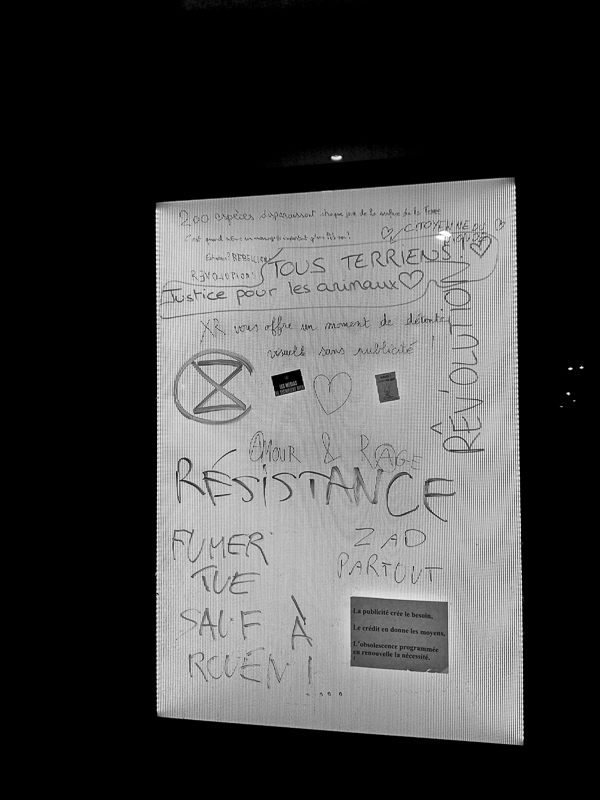 200 espèces disparaissent chaque jour de la surface de la Terre
CITOYEN.NE DU
MONDE
REBELLION
TOUS TERRIENS !
Justice pour les animaux
RÊV'OLUTION
XR vous offre un moment de détente
visuelle sans publicité !
AMOUR & RAGE
RÉSISTANCE
FUMER
TUE
SAUF À
ROUEN !
ZAD
PARTOUT
La publicité crée le besoin.
Le crédit en donne les moyens.
L'obsolescence programmée
en renouvelle la nécessité.